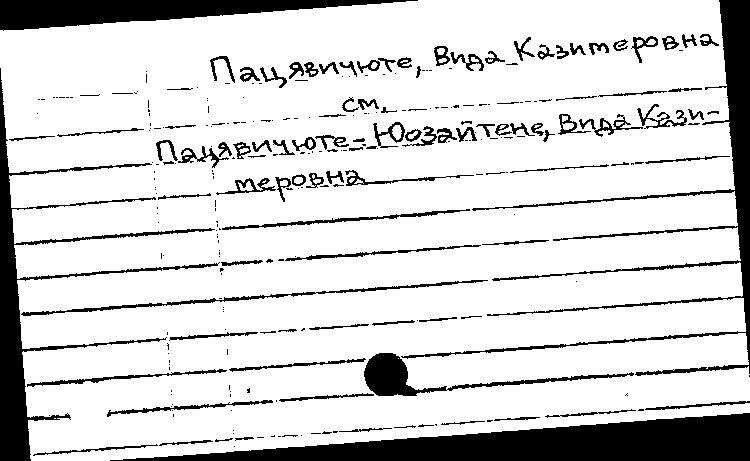 Пацявичюте, Вида Казимеровна
см.
Пацявичюте-Юозайтене, Вида Кази-
меровна